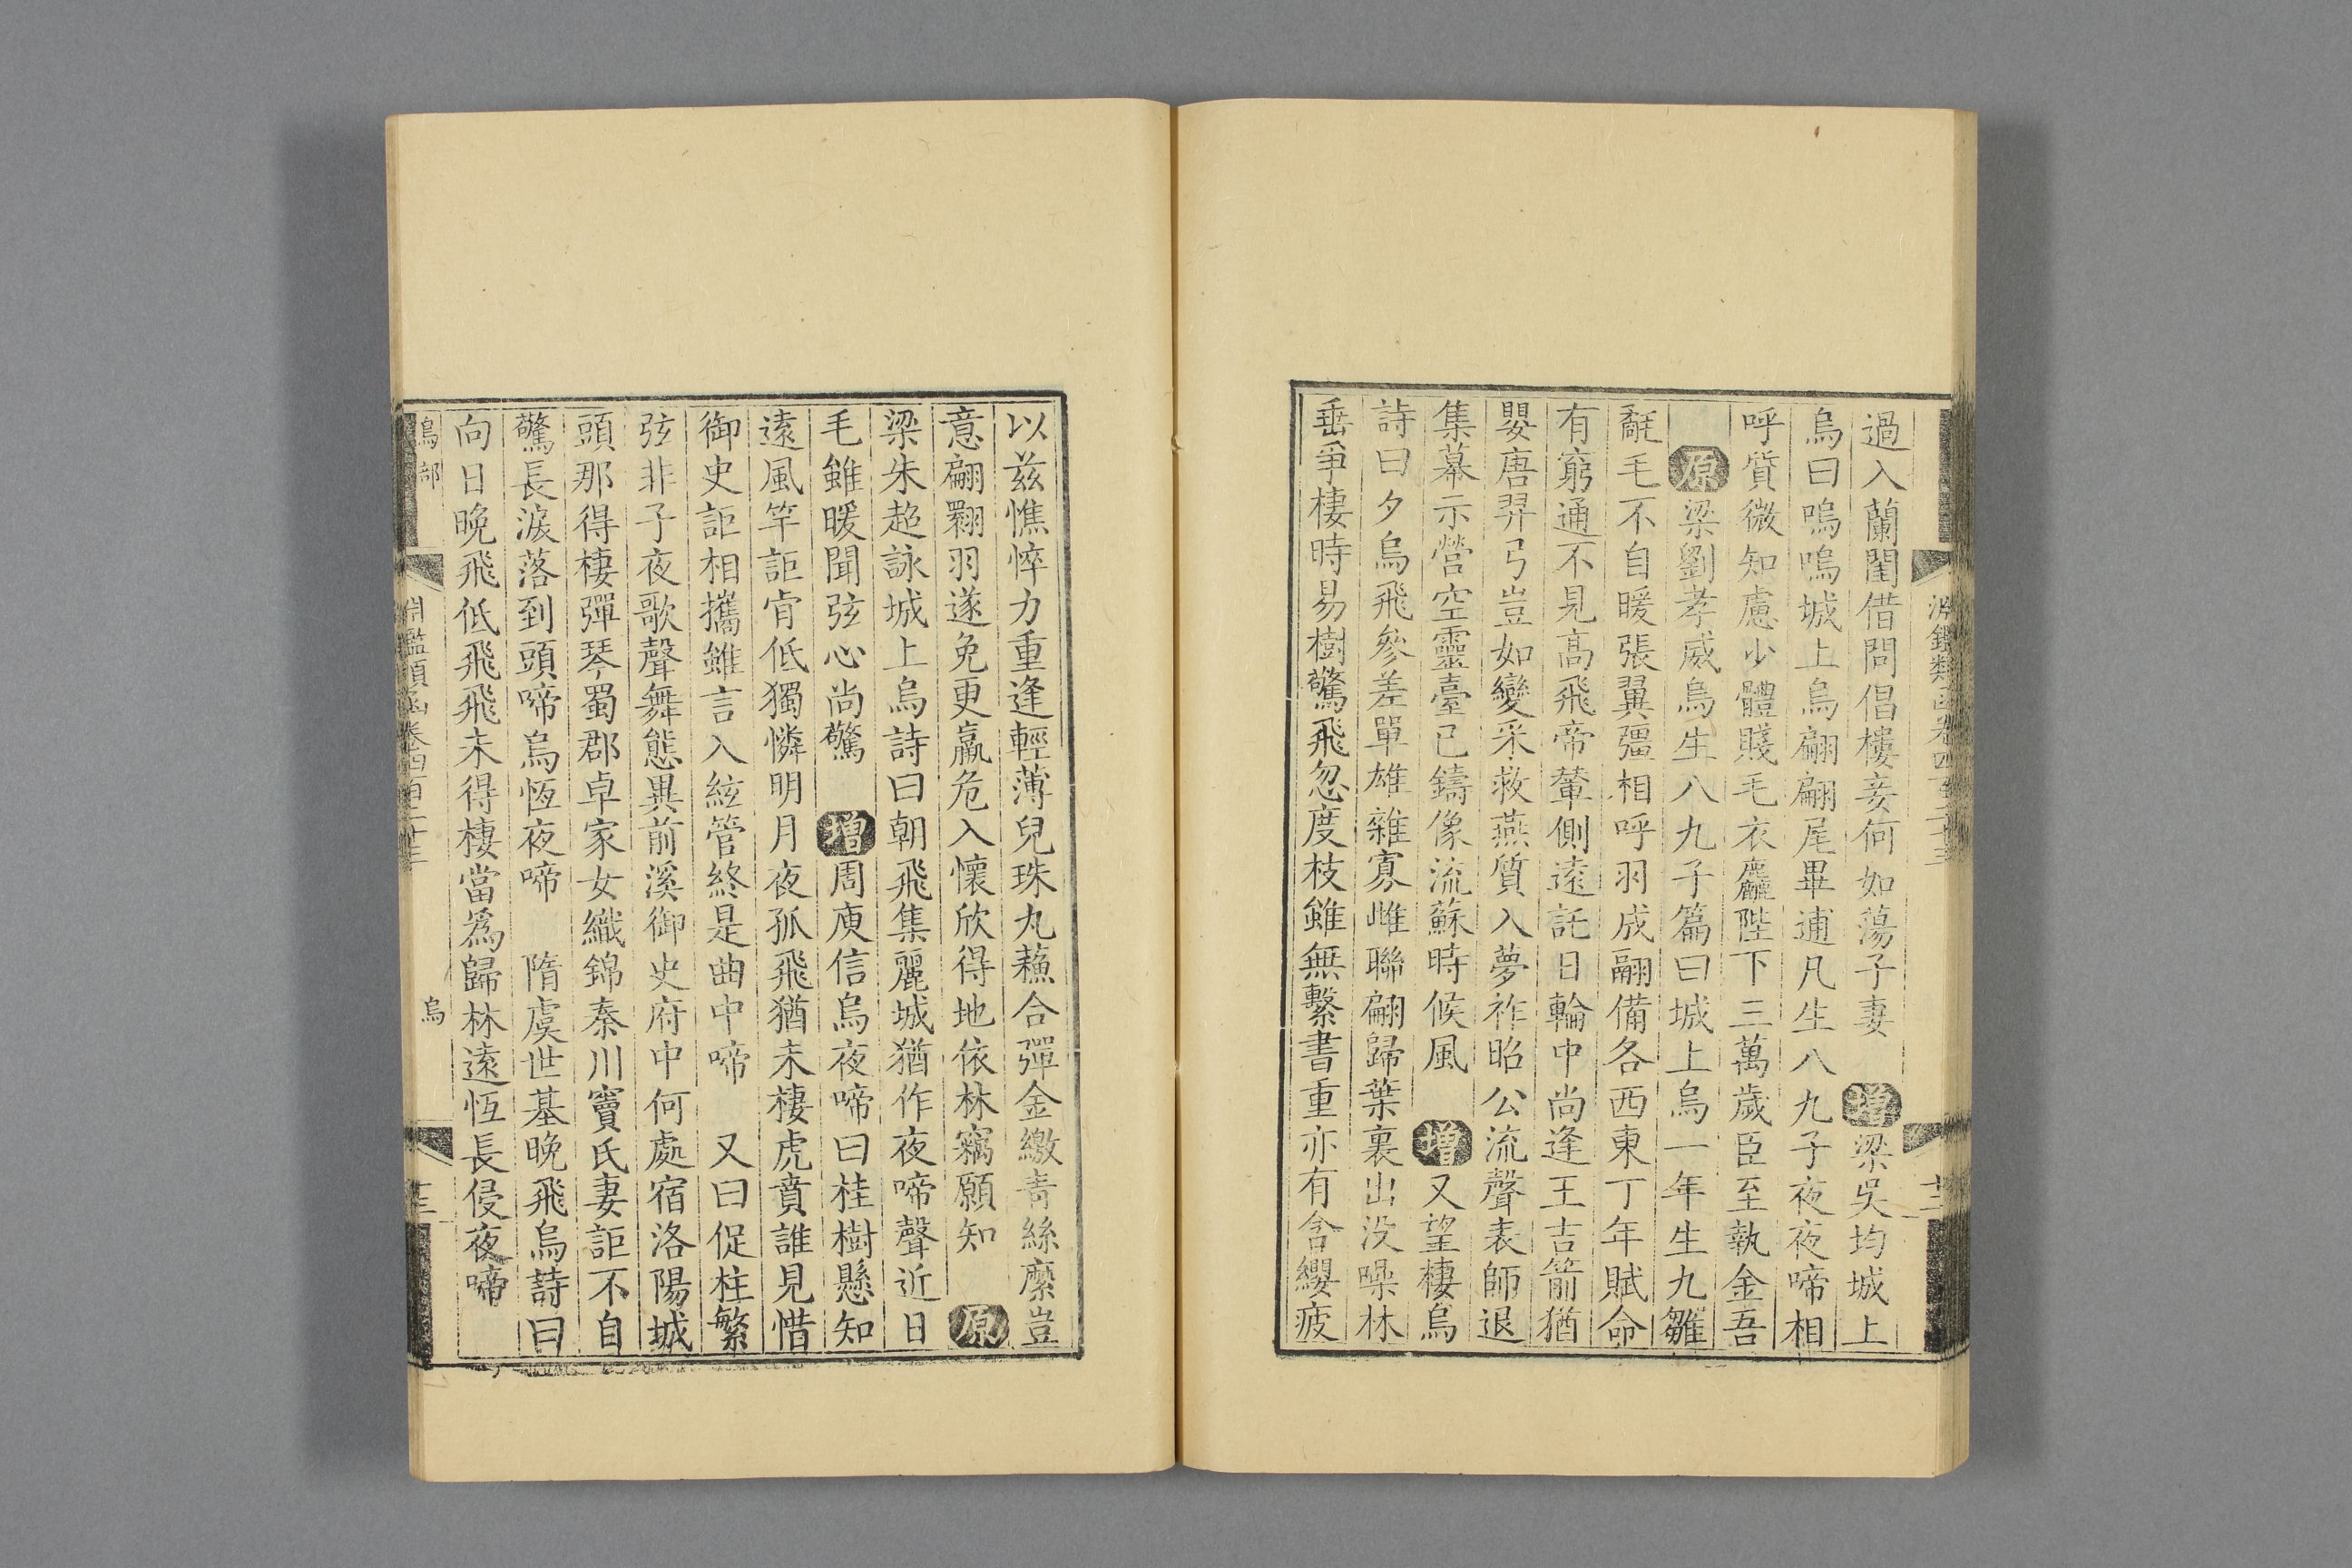 過入蘭閨借問倡樓妾何如蕩子妻　增梁吳均城上
烏曰嗚嗚城上烏翩翩尾畢逋凡生八九子夜夜啼相
呼質微知慮少體賤毛衣麤陛下三萬歲臣至執金吾
原梁劉孝威烏生八九子篇曰城上烏一年生九雛
毛不自暖張翼彊相呼羽成翮備各西東丁年賦命
有窮通不見高飛帝輦側遠託日輪中尚逢王吉箭猶
嬰唐羿弓豈如變采救燕質入夢祚昭公流聲表師退
集幕示營空靈臺已鑄像流蘇時候風　增又望棲烏
詩曰夕烏飛參差單雄雜寡雌聯翩歸葉裏出没噪林
垂爭棲時易樹驚飛忽度枝雖無繫書重亦有含纓疲
淵鑑類函卷四百二十三
以兹憔悴力重逢輕薄兒珠丸蘓合彈金繳青絲縻豈
意翩翾羽遂免更羸危入懷欣得地依林竊願知　原
梁朱超詠城上烏詩曰朝飛集麗城猶作夜啼聲近日
毛雖暖聞弦心尚驚　增周庾信烏夜啼曰桂樹懸知
遠風竿詎肯低獨憐明月夜孤飛猶未棲虎賁誰見惜
御史詎相攜雖言入絃管終是曲中啼　又曰促柱繁
弦非子夜歌聲舞態異前溪御史府中何處宿洛陽城
頭那得棲彈琴蜀郡卓家女織錦秦川竇氏妻詎不自
驚長淚落到頭啼烏恆夜啼　隋虞世基晚飛烏詩曰
向日晚飛低飛飛未得棲當為歸林遠恆長侵夜啼
鳥部　淵鑑類函卷四百二十三　烏